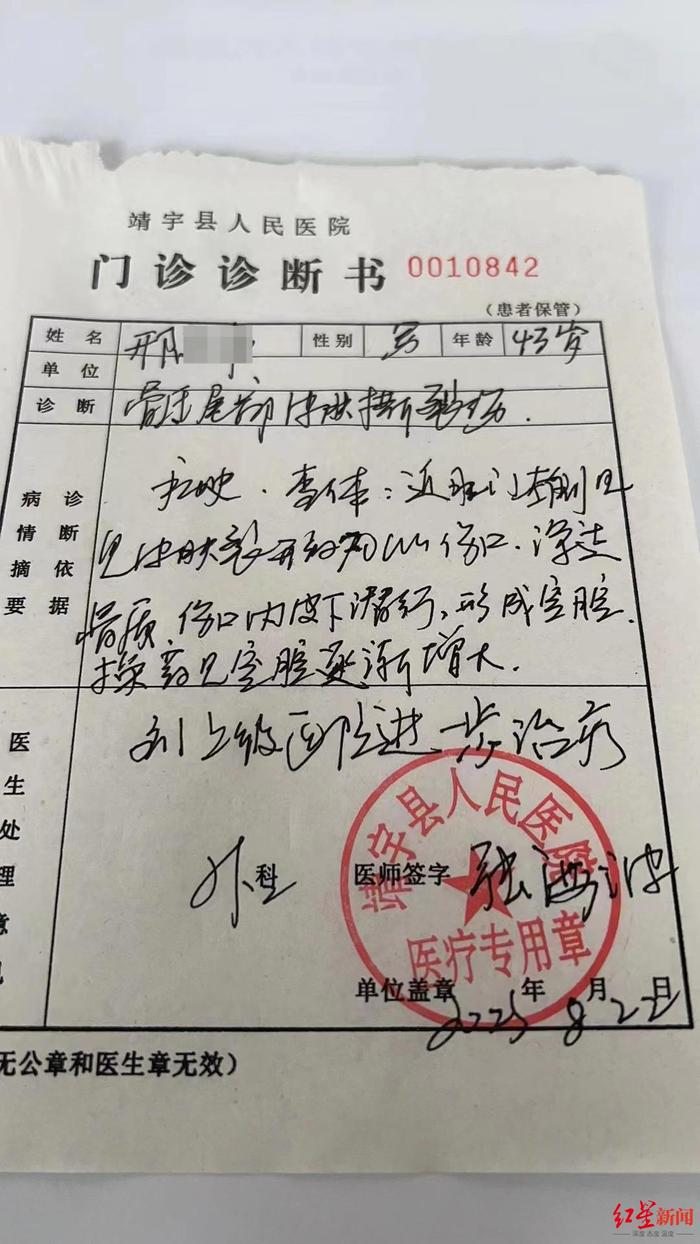 靖宇县人民医院
门诊诊断书 0010842
（患者保管）
姓名 邢 性别 男 年龄 43岁
单位
诊断 骶尾部皮肤
病情摘要 诊断依据
查体：近肛门
见皮肤裂开 伤口，深达
伤口内皮下潜行，形成空腔，
见空腔逐渐增大．
医生处理意见
到上级医院进一步治疗
外科 医师签字 张海波
靖宇县人民医院
医疗专用章
单位盖章 2025年8月22日
无公章和医生章无效）
红星新闻
深度 态度 温度